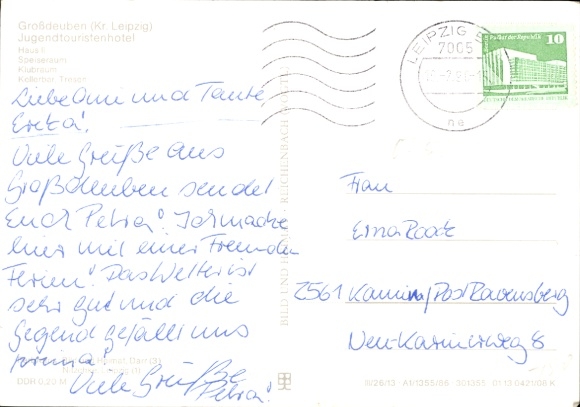 Großdeuben (Kr. Leipzig)
Jugendtouristenhotel
Haus I
Speiseraum
Klubraum
Kellerbar, Tresen
Liebe Omi und Tante
Erika!
Viele Grüße aus
Großdeuben sendet
Euch Petra! Ich mache
hier mit einer Freundin
Ferien! Das Wetter ist
sehr gut und die
Gegend gefällt uns
prima!
Viele Grüße
Petra!
DDR 0,20 M
BILD UND HEIMAT REICHENBACH
LEIPZIG
7005
ne
Palast der Republik
10
Frau
Erna
2561 Kamin/Post Ravensberg
Neu-Karinerweg 8
301355